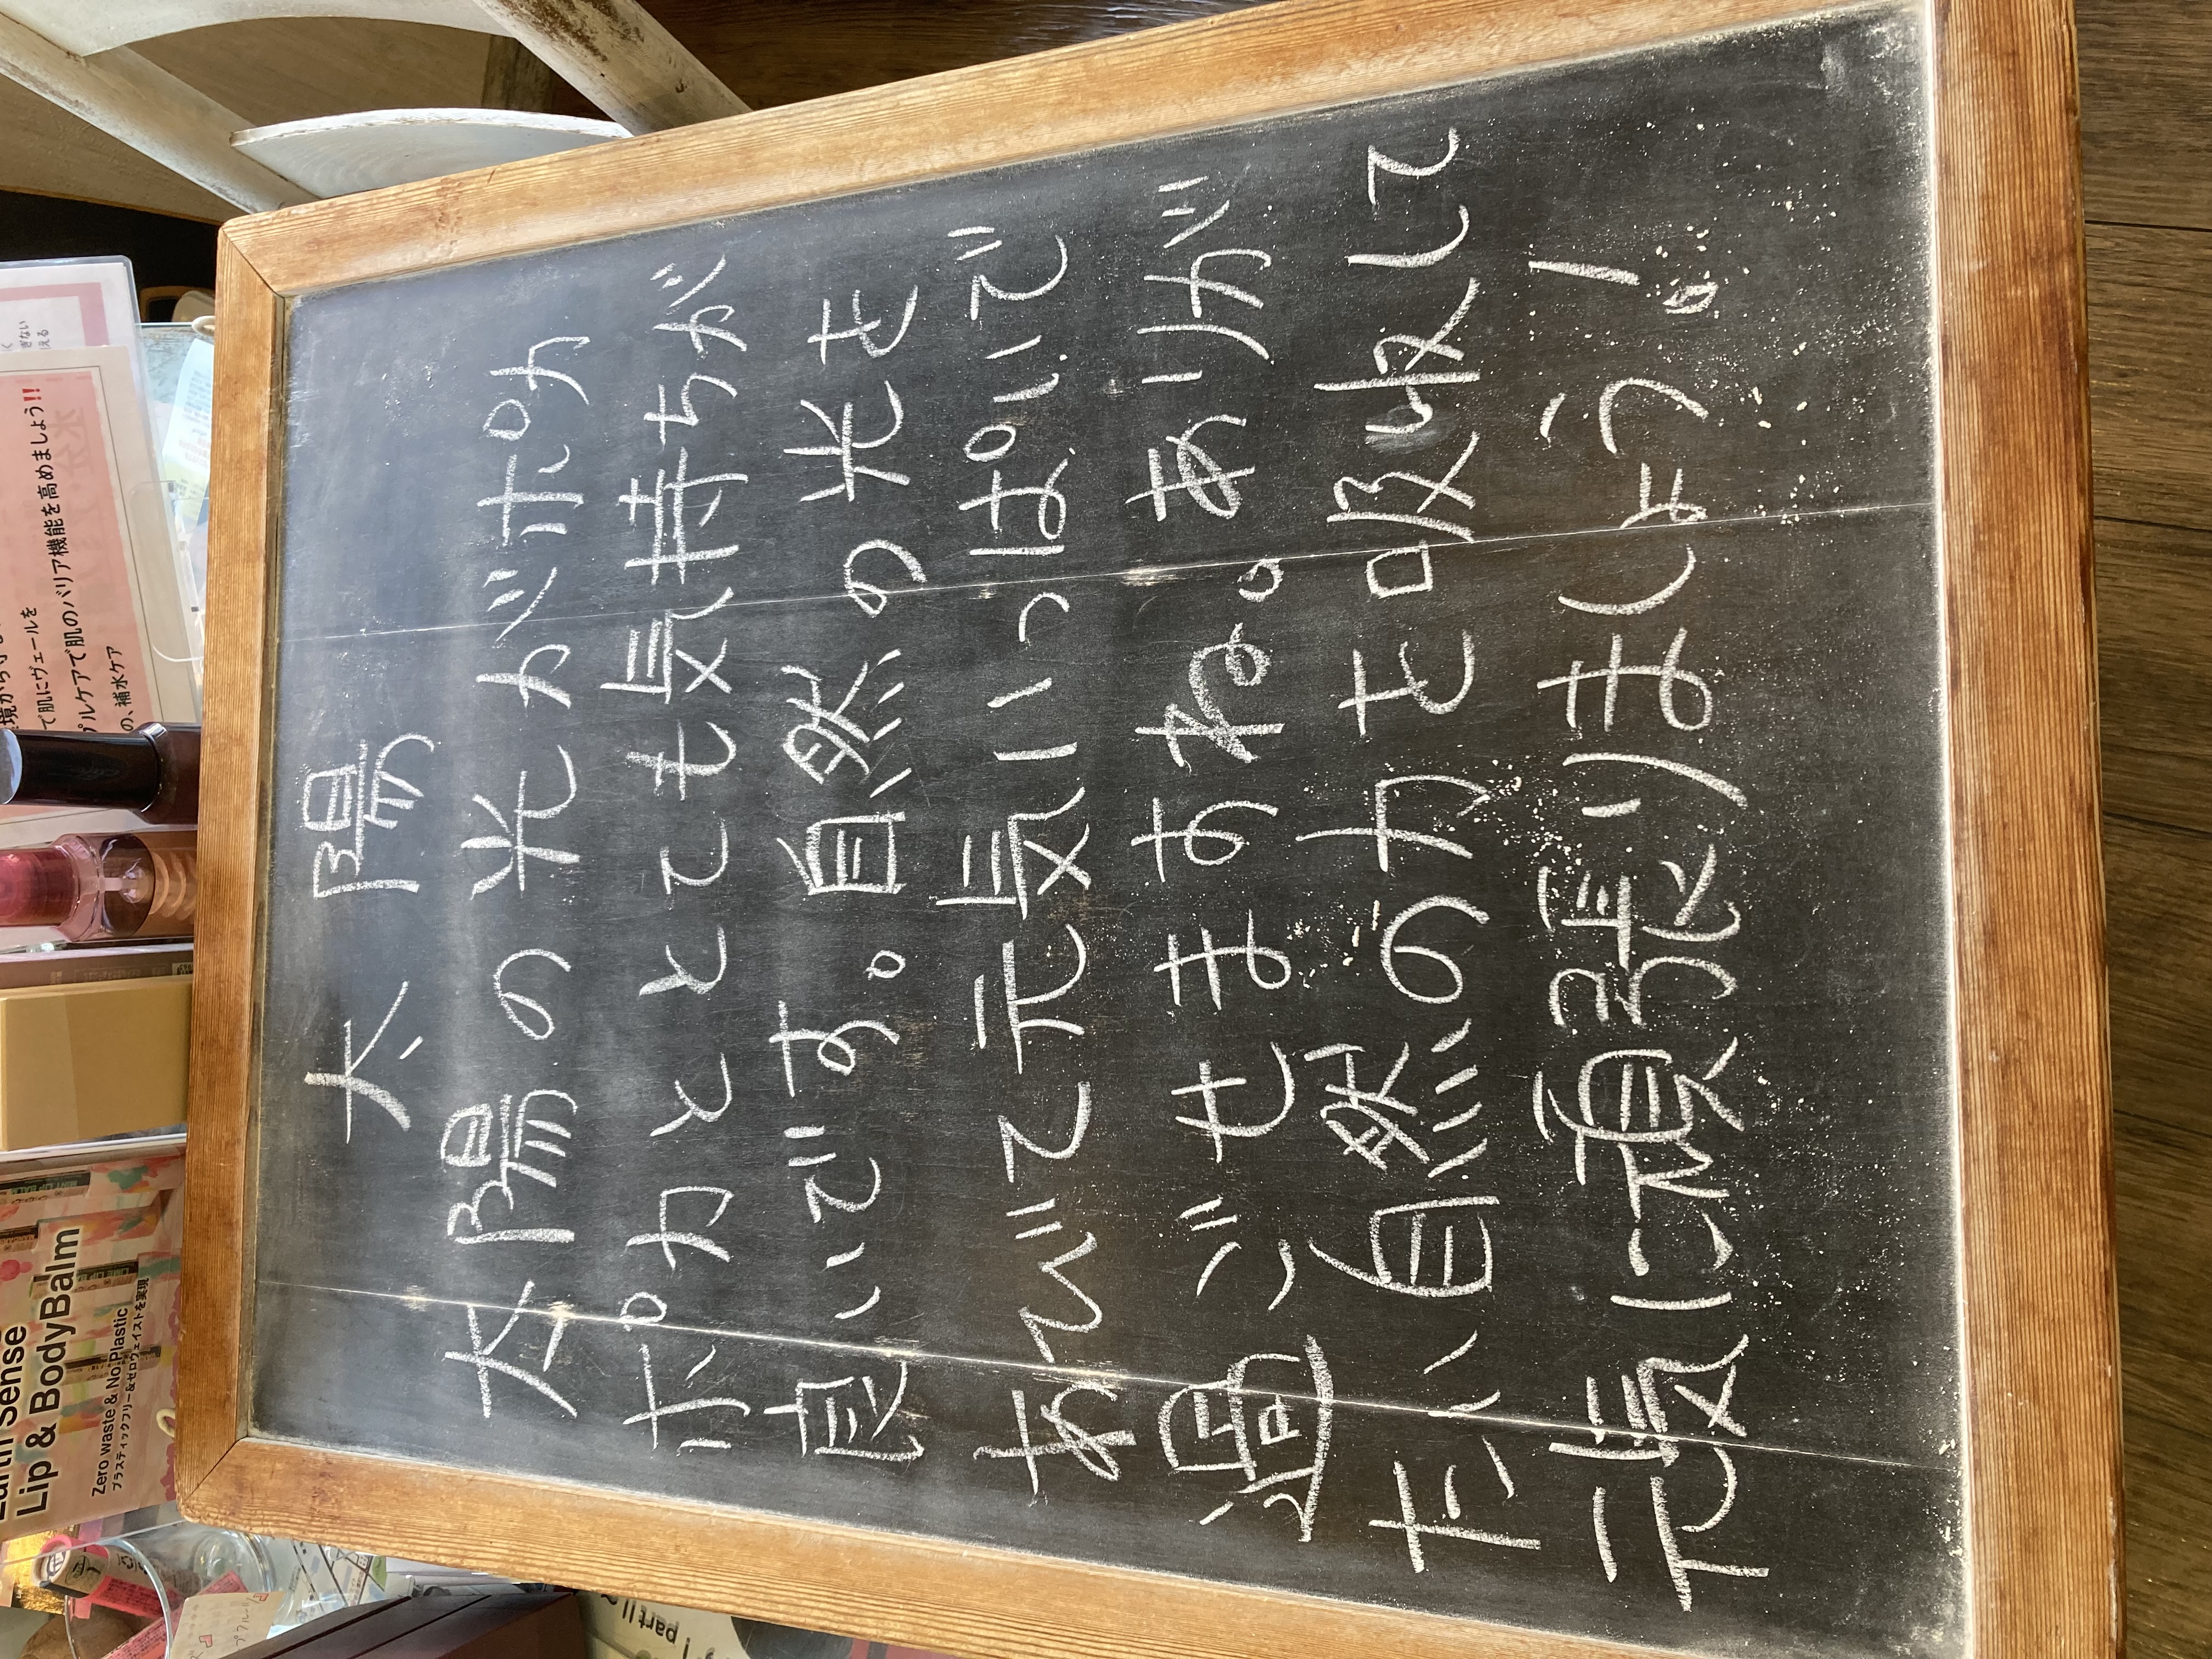 太陽
太陽の光がポカ
ポカととても気持ちが
良いです。自然の光を
あびて元気いっぱいで
過ごせますね。ありが
たい自然の力を吸収して
元気に頑張りましょう!。
で肌にヴェールを
プルケアで肌のバリア機能を高めましょう!!
の、補水ケア
Earth Sense
Lip & BodyBalm
Zero waste & No Plastic
プラスティックフリー&ゼロウェイストを実現
part II